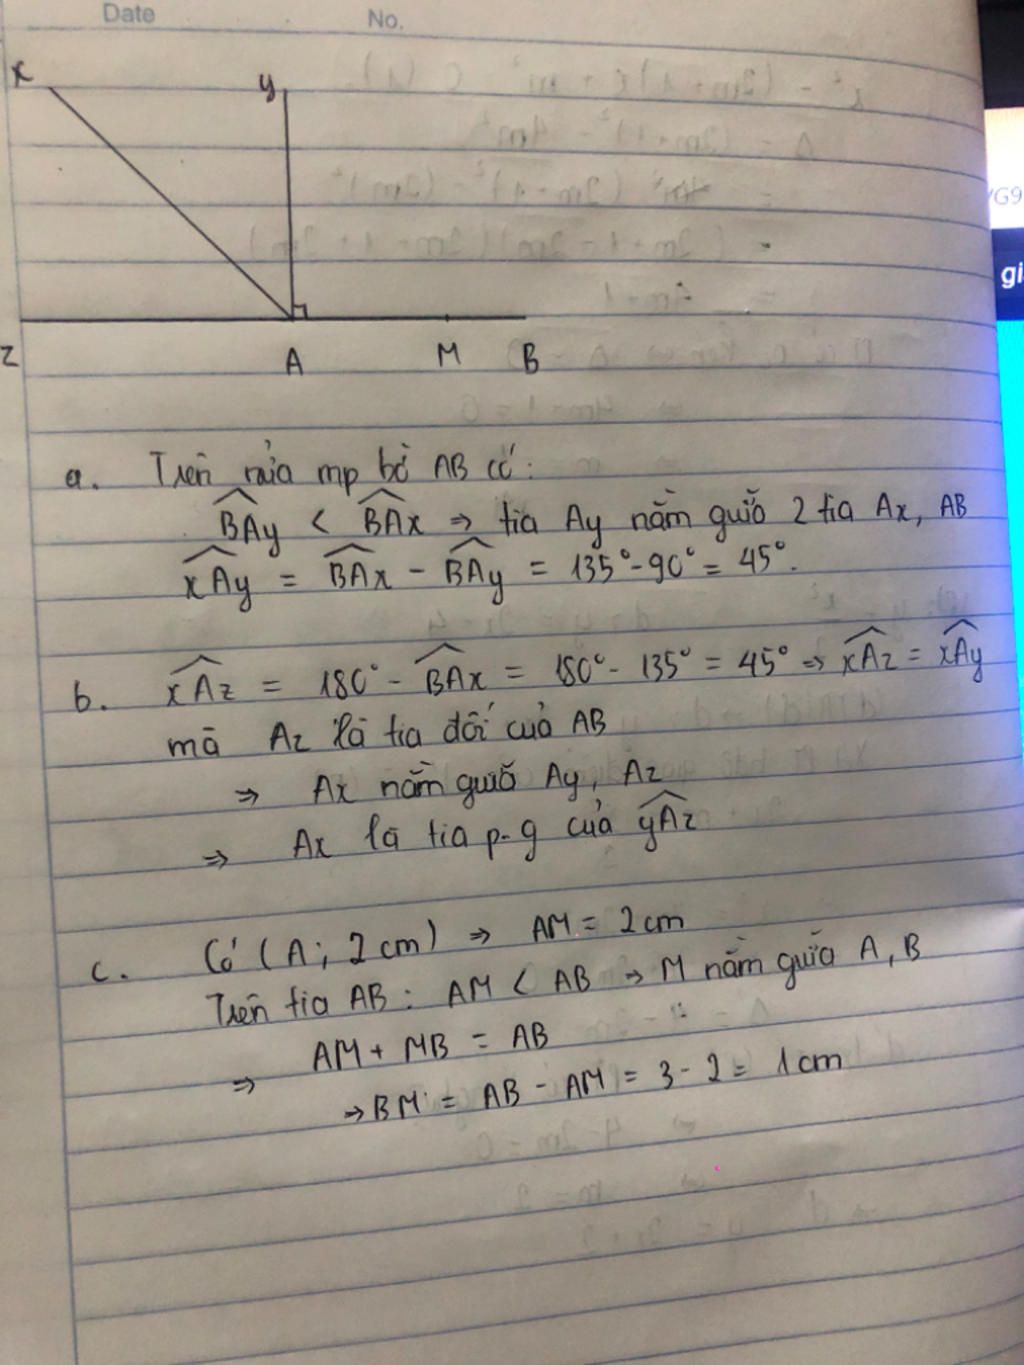 Date No.
x y
z A M B
a. Trên nửa mp bờ AB có:
BAy < BAx ⇒ tia Ay nằm giữa 2 tia Ax, AB
xAy = BAx - BAy = 135° - 90° = 45°.
b. xAz = 180° - BAx = 180° - 135° = 45° ⇒ xAz = xAy
mà Az là tia đối của AB
⇒ Ax nằm giữa Ay, Az
⇒ Ax là tia p-g của yAz
c. Có (A; 2cm) ⇒ AM = 2cm
Trên tia AB: AM < AB → M nằm giữa A, B
⇒ AM + MB = AB
→ BM = AB - AM = 3 - 2 = 1cm
G9
gi